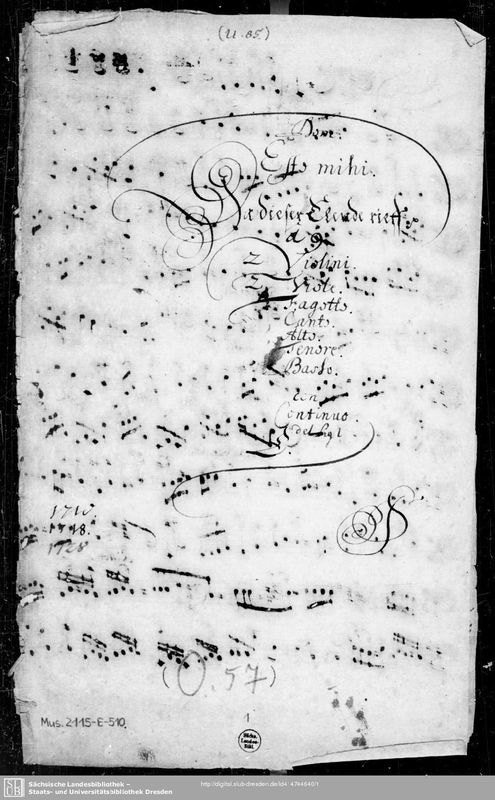 (U. 85.)
Dom:
Esto mihi.
Da dieser Elende rieff
a 9.
2 Violini.
2 Viole.
Fagotto.
Canto.
Alto.
Tenore.
Basso.
con
Continuo
del Sig
1718.
1728
(O. 57)
Mus. 2115-E-510.
1
Sächs.
Landes-
Bibl.
SLUB
Sächsische Landesbibliothek –
Staats- und Universitätsbibliothek Dresden
http://digital.slub-dresden.de/id4744640/1